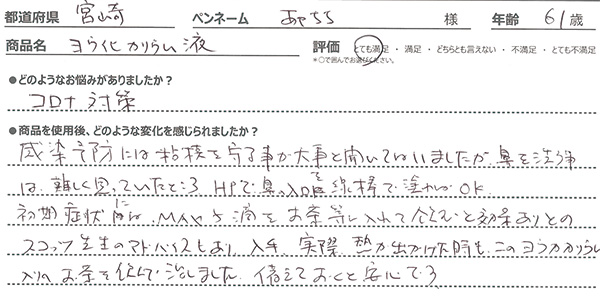 都道府県 宮崎 ペンネーム あちち 様 年齢 61 歳
商品名 ヨウ化カリウム液 評価 とても満足・満足・どちらとも言えない・不満足・とても不満足
*○で囲んでお選びください。
●どのようなお悩みがありましたか?
コロナ対策
●商品を使用後、どのような変化を感じられましたか?
感染予防には粘膜を守る事が大事と聞いてはいましたが、鼻を洗浄
は、難しく思っていたところ HPで、鼻の入口を綿棒で塗れば OK
初期症状には、MAX5滴をお茶等に入れて飲むと効果ありとの
スコッツ先生のアドバイスもあり、入手、実際、熱が出かけた時も、このヨウ化カリウム
入りのお茶を飲んで治しました。備えておくと安心です